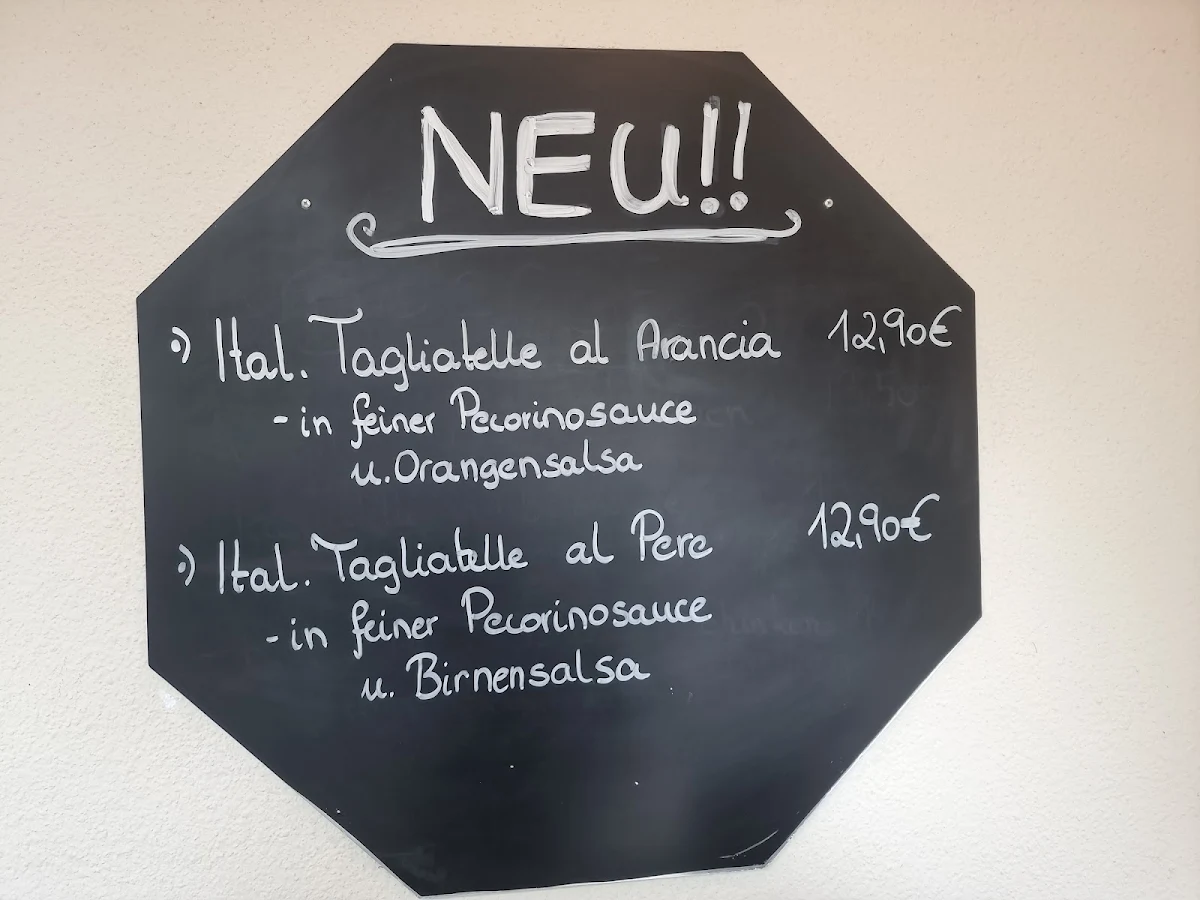 NEU!!
Ital. Tagliatelle al Arancia 12,90€
- in feiner Pecorinosauce
u. Orangensalsa
Ital. Tagliatelle al Pere 12,90€
- in feiner Pecorinosauce
u. Birnensalsa